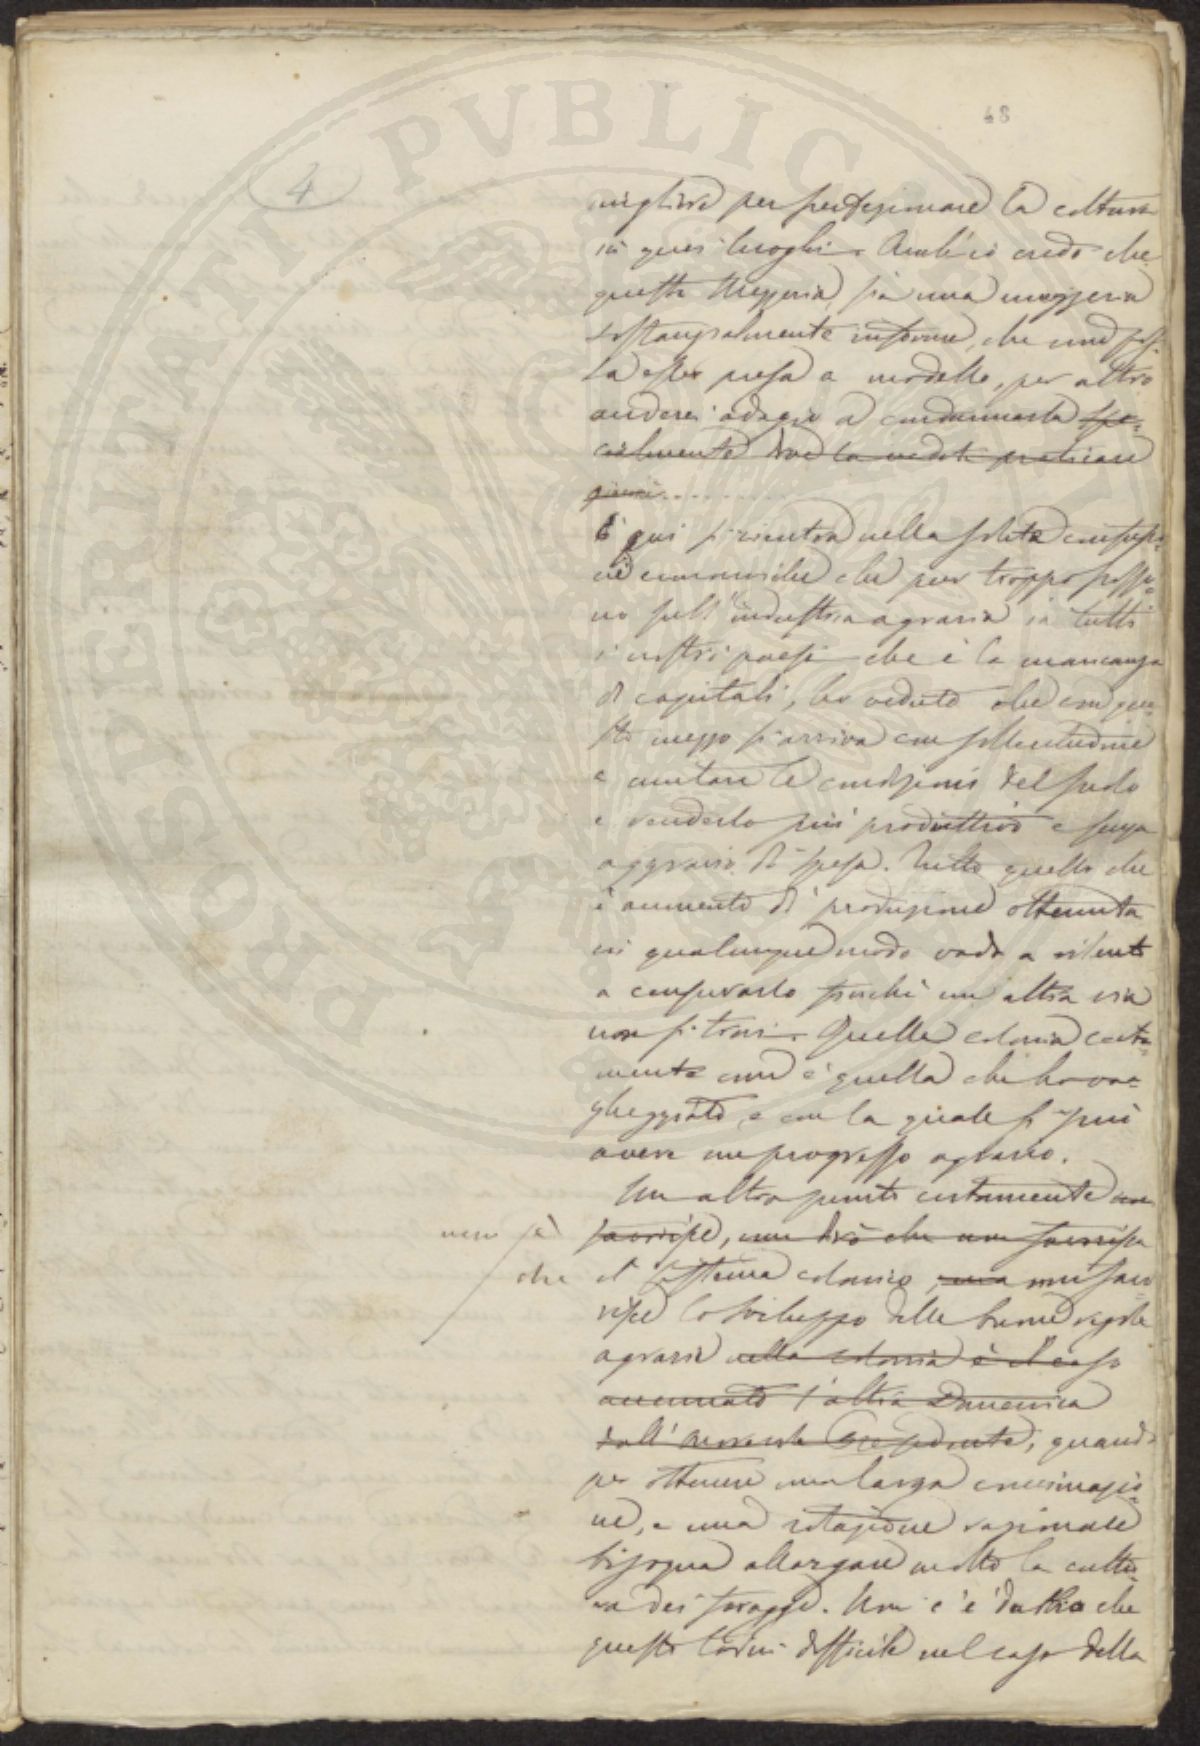 48
4
PROSPERITATI PVBLICAE
migliore per perfezionare la coltura
in quei luoghi. Anch'io credo che
questa Mezzeria sia una mezzeria
sostanzialmente informe, che non pos-
sa esser presa a modello, per altro
anderei adagio a condannarla spe-
cialmente dove la vedete praticare
E qui si rientra nella solita
economiche che pur troppo
no sull'industria agraria in tutti
i nostri paesi che è la mancanza
di capitali, ho veduto che con que-
sto mezzo si arriva con sollecitudine
a mutare le condizioni del suolo
e renderlo più produttivo e senza
aggravio di spesa. Tutto quello che
è aumento di produzione ottenuta
in qualunque modo vado a rilento
a censurarlo finchè un'altra via
non si trovi. Quella colonia certa-
mente non è quella che ho va-
gheggiato, e con la quale si può
avere un progresso agrario.
Un altro punto certamente non
favorisce, non dirò che non favorisca
vero sè
che il sistema colonico, ma non favo
risce lo sviluppo delle buone regole
agrarie nella colonia è il caso
accennato l'altra Domenica
dall'Onorevole Presidente, quando
per ottenere una larga concimazio-
ne, e una rotazione razionale
bisogna allargare molto la coltu-
ra dei foraggi. Non c'è dubbio che
questo torni difficile nel caso della